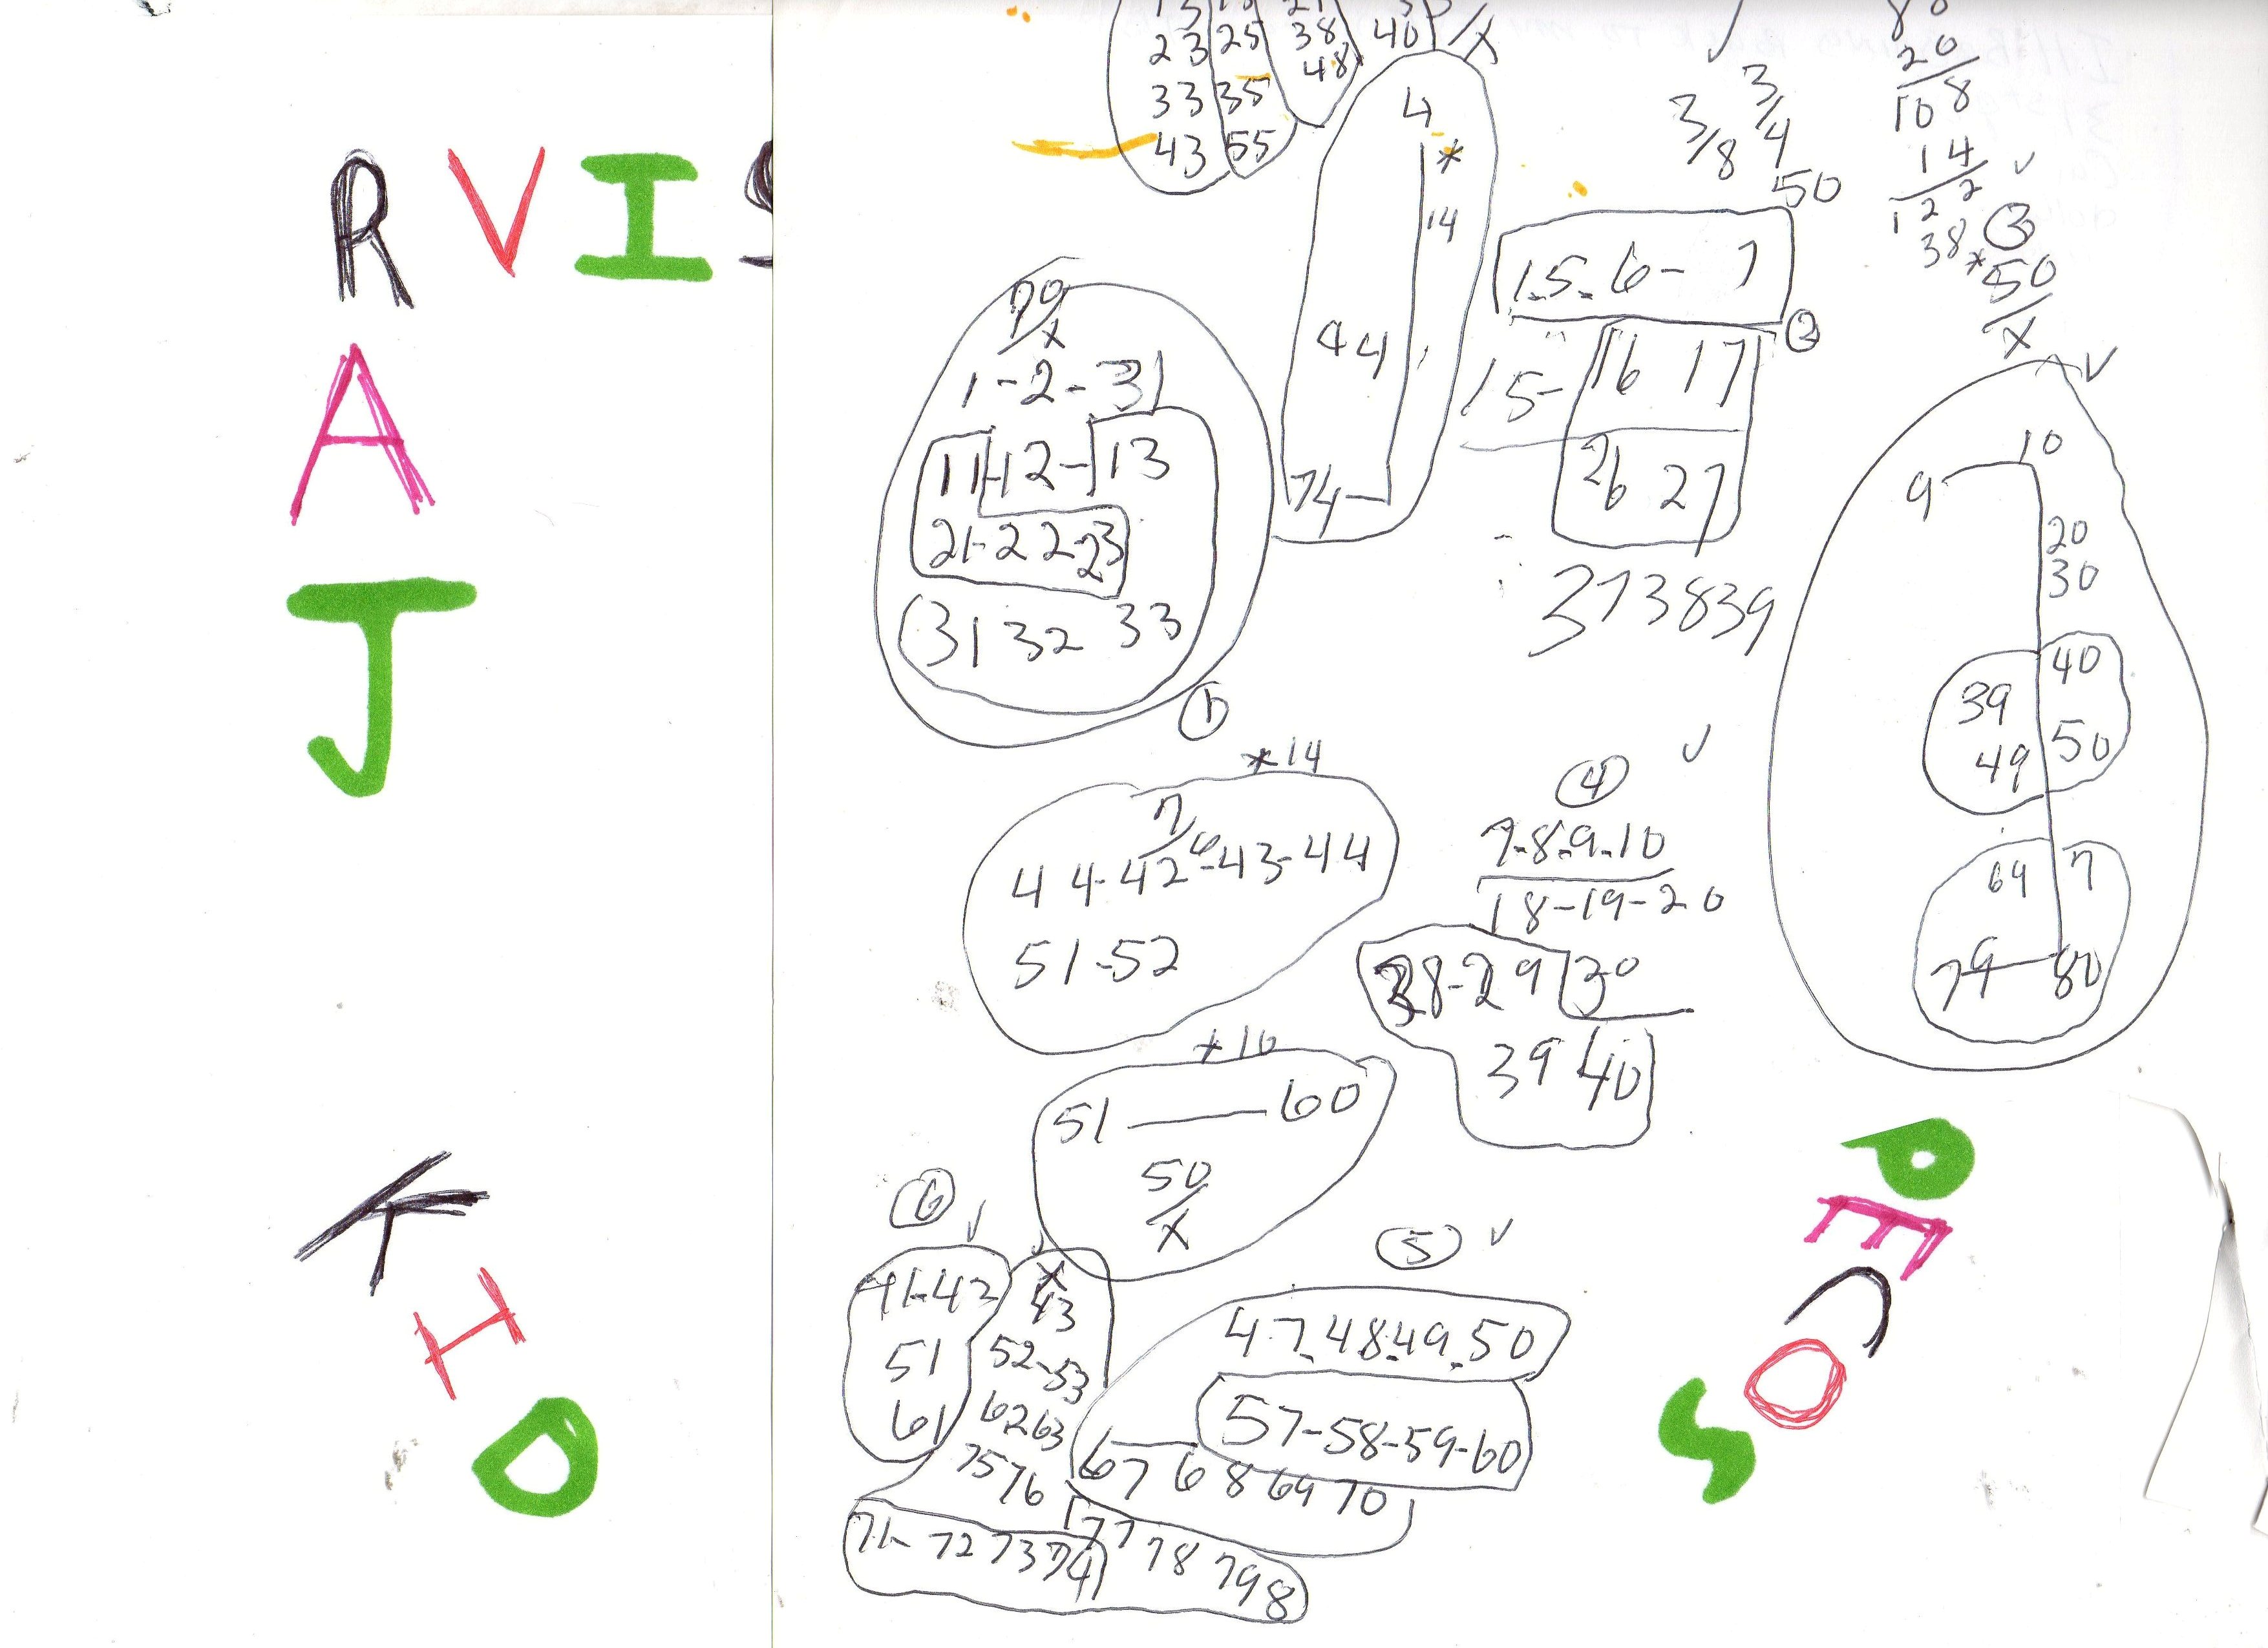 R V I S
A
J
K
H
O
23 25 38 40 / X
48
33 35
43 55
4
*
14
44
74
3/8
3/4
50
20
108
14
122
38 * 50
X
③
1-5-6-7
②
15- 16 17
26 27
373839
70
X
1-2-31
11-12-13
21-22-23
31 32 33
①
10
9
20
30
40
39
50
49
69 7
79 80
*14
7/6
44-42-43-44
51-52
④
7-8-9-10
18-19-20
28-29 30
39 40
*10
51 — 60
50
X
⑥
41-42
X
43
51
52-53
61
6263
7576
71-72 73 74
⑤
47-48-49-50
57-58-59-60
67 68 69 70
77 78 79 8
P
E
C
O
S